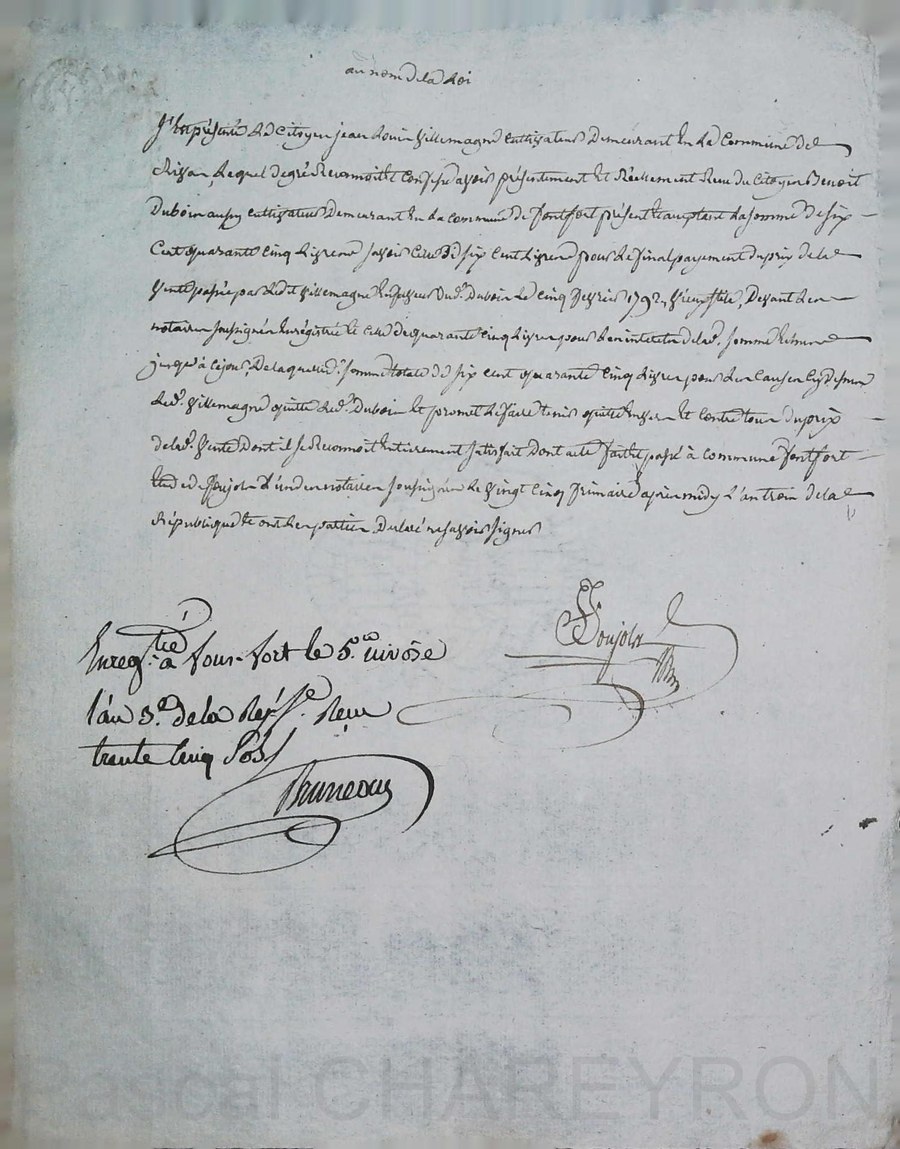 au nom de la Loi
s'est présenté Le Citoyen jean Louis Villemagne cultivateur Demeurant En La Commune de
Rissan, Lequel de gré Reconnoit Et Confesse avoir présentement Et Réellement Reçu du Citoyen Benoit
Duboin aussy cultivateur Demeurant En La commune De fontfort présent acceptant La somme De six
Cent quarante Cinq Livres savoir Celle de six Cent Livres pour Le final payement du prix de la
Vente passée par Ledit Villemagne En faveur Dud. Duboin Le Cinq fevrier 1792 Vieux stile, Devant Le
notaire soussigné Enregistré Et Celle de quarante Cinq Livres pour Les interets de lad. somme
jusqu'à Ce jour, De laquelle d. somme totale de six cent quarante Cinq Livres pour Les Causes Cy dessus
Led. Villemagne quitte Led. Duboin Et promet Le faire tenir quitte Envers Et Contre tous du prix
de lad. Vente Dont il se Reconnoit Entierement satisfait Dont acte fait Et passé à Commune fontfort
Etude de Poujol L'un des notaires soussigné Le Vingt Cinq frimaire après midy L'an trois de la
République Et ont Les parties Declaré ne savoir signer
Poujol
Nre
Enregtré à fons-fort le 5e nivôse
l'an 3e de la Rep. fse. Reçu
trente Cinq Sols
Bruneau
Pascal CHAREYRON